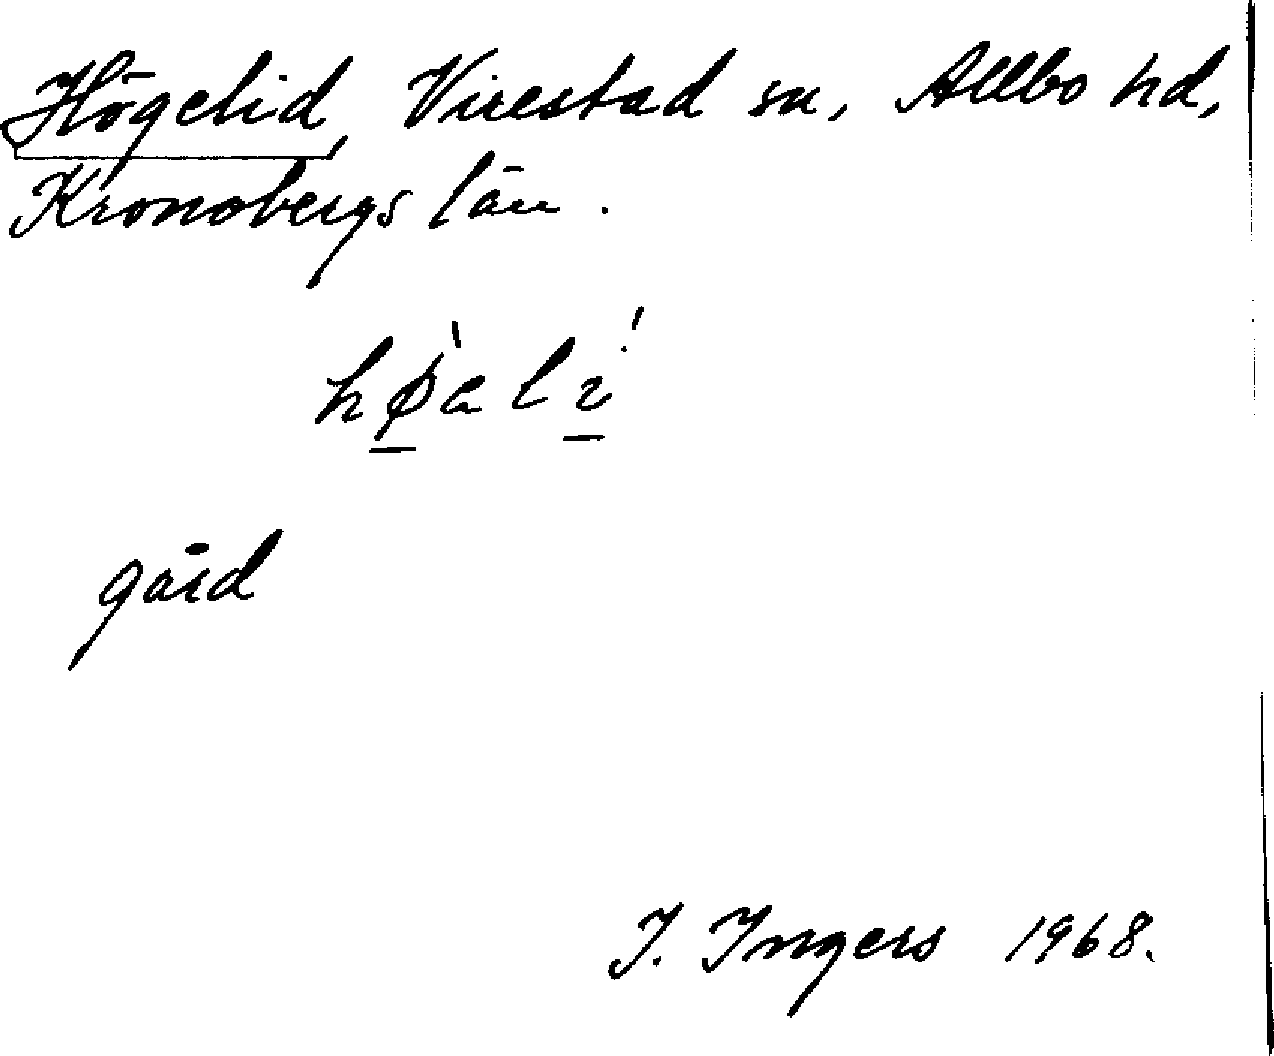 Högelid, Virestad sn, Allbo hd,
Kronobergs län.
gård
I. Ingers 1968.